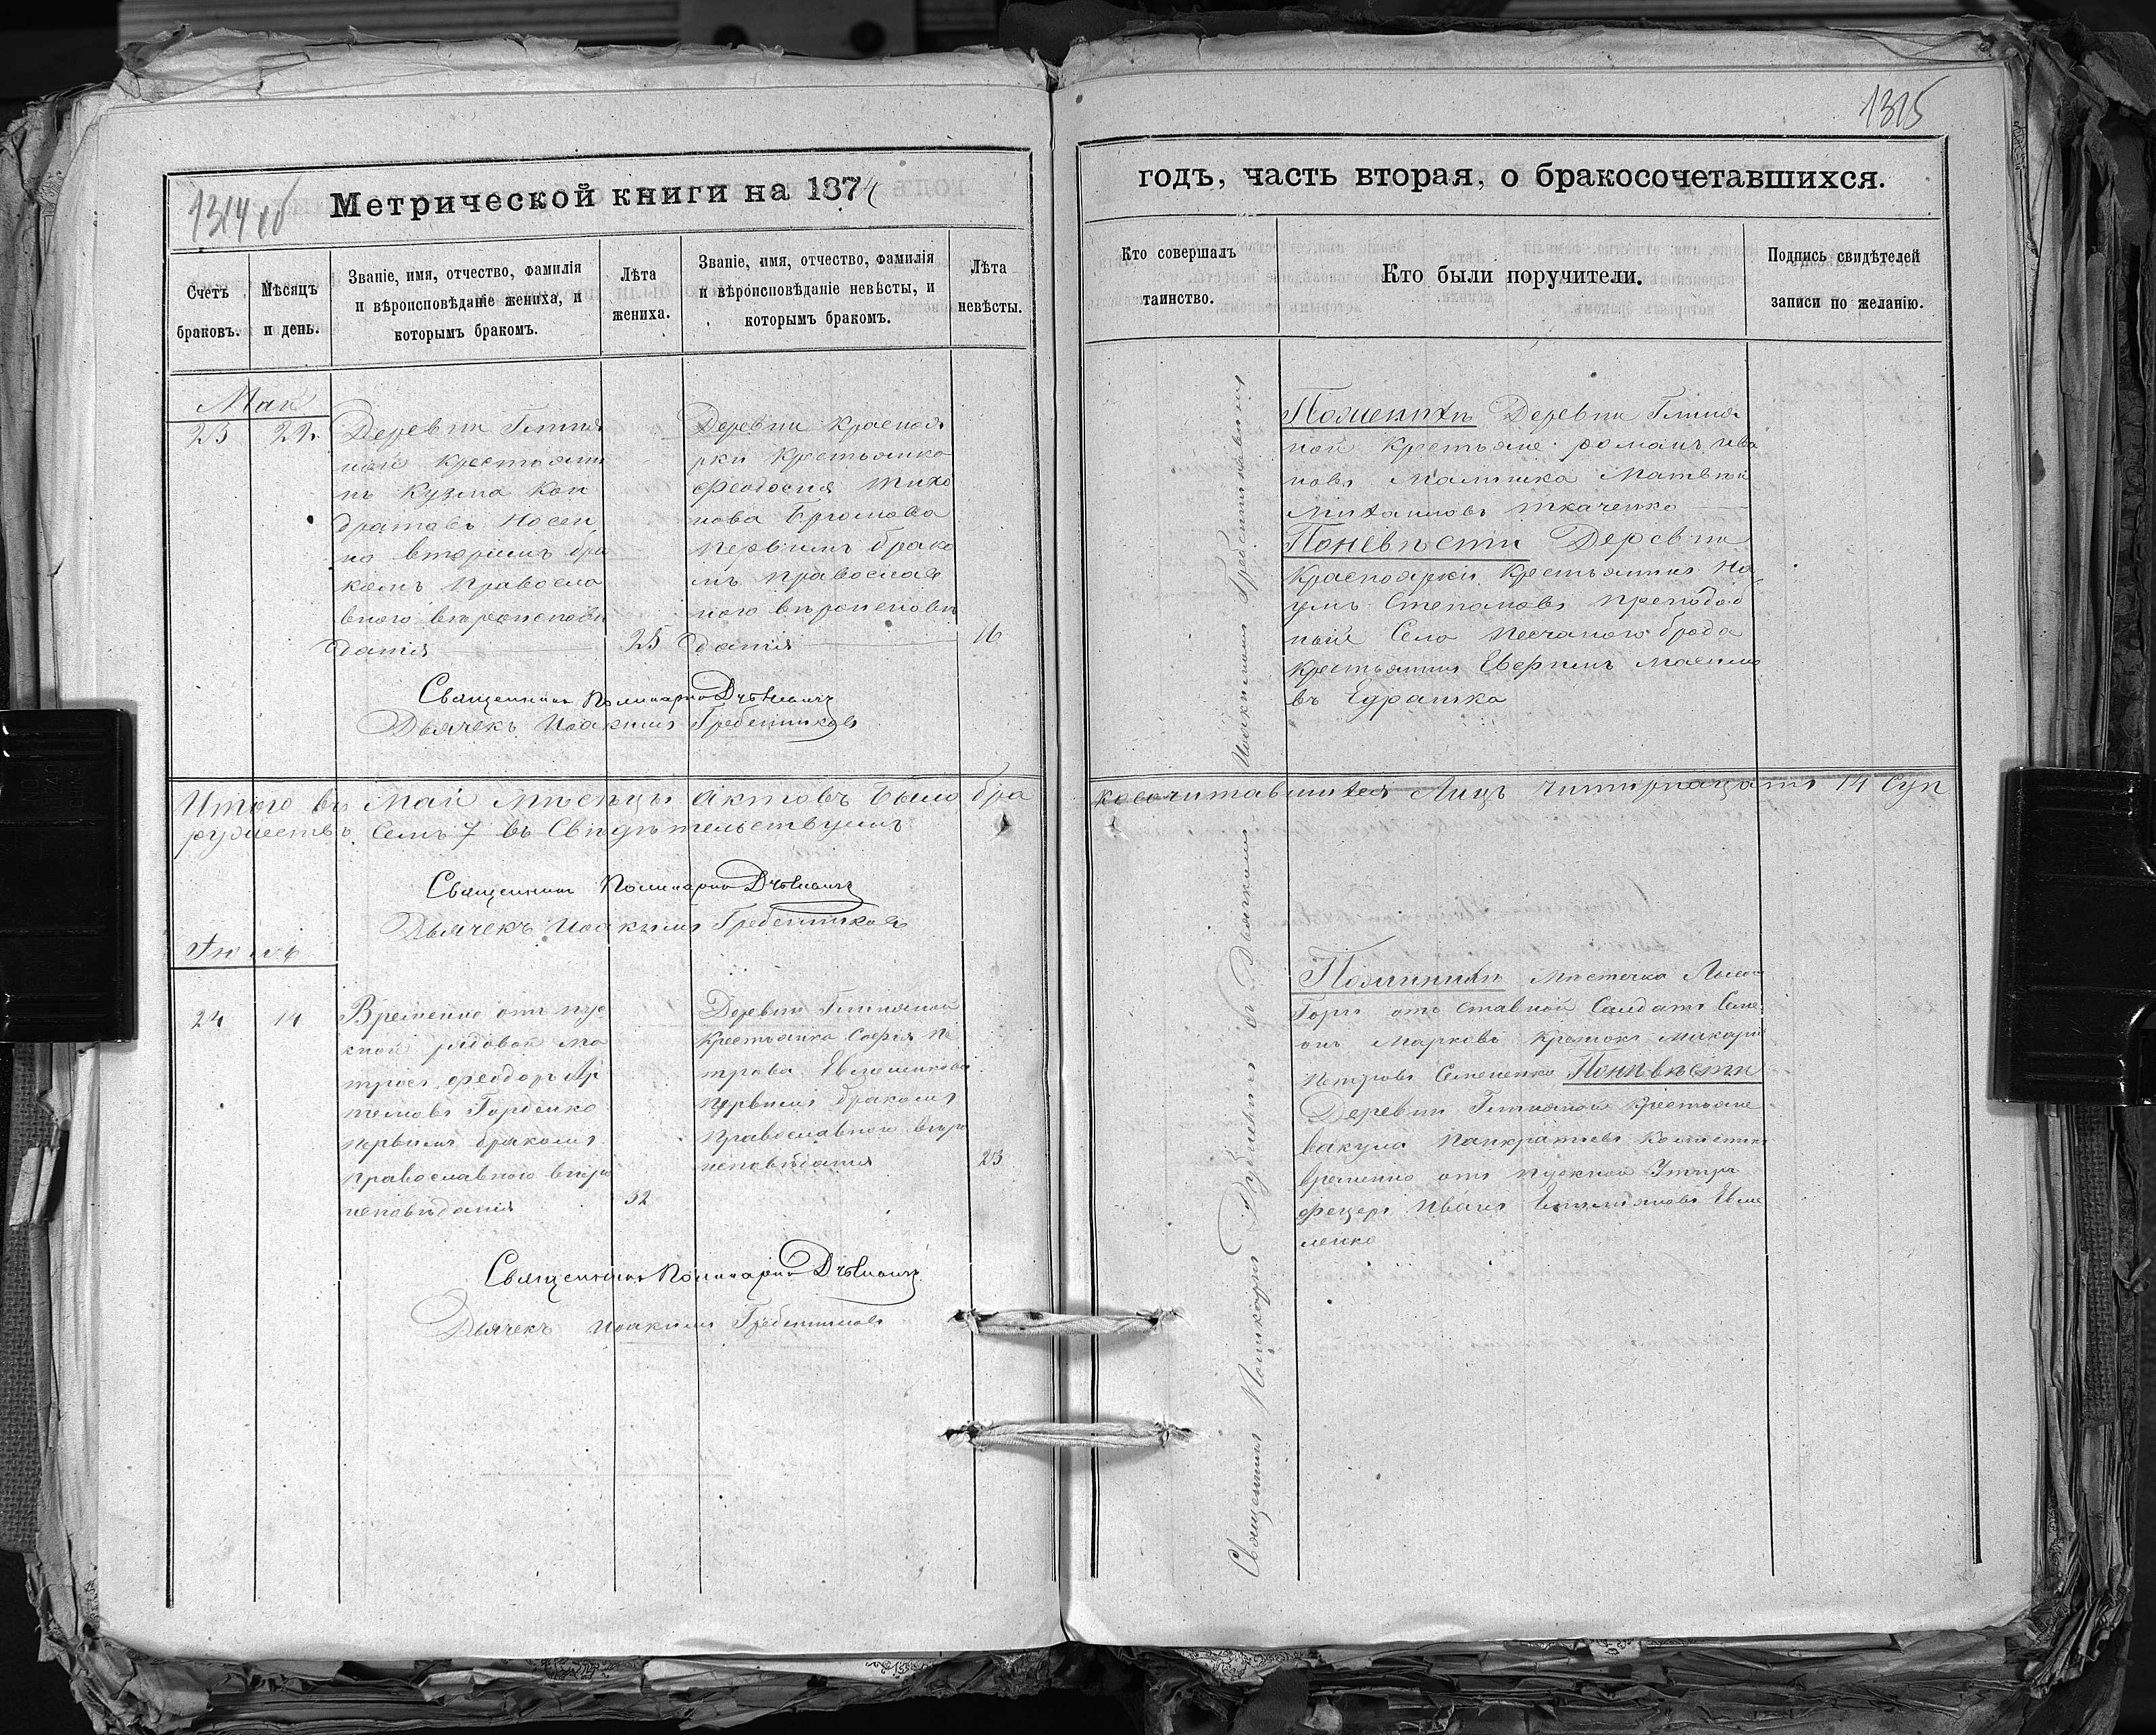 1314 об
Метрической книги на 1874
Счетъ браковъ.
Мѣсяцъ и день.
Званіе, имя, отчество, фамилія
и вѣроисповѣданіе жениха, и
которымъ бракомъ.
Лѣта
жениха.
Званіе, имя, отчество, фамилія
и вѣроисповѣданіе невѣсты, и
которымъ бракомъ.
Лѣта
невѣсты.
Маи
23
22
Деревни Глиня
ной крестьяни
нъ Кузма Кон
дратовъ Носен
ко вторимъ бра
комъ Правосла
вного вѣроисповѣ
данія
25
Деревни Краснояр
рки Крестьянка
Феодосия Тихо
нова
Первимъ брако
мъ православ
ного вѣроисповѣ
данія
16
Священникъ
Дьячекъ Иоакимъ Гребенниковъ
Итого въ Маи Мѣсецы Актовъ было бра
ружествъ Семъ 7 въ Свѣдѣтельствуимъ
Священникъ
Дьячекъ Иоакимъ Гребенниковъ
Июль
24
14
Временно отпус
кной рядовой ма
трос Феодоръ Ар
темовъ Гордѣнко
первимъ бракомъ
православного вѣро
исповѣданія
32
Деревни Глиняной
Крестьянка София Пе
трова
первимъ бракомъ
православного вѣро
исповѣданія
23
Священникъ
Дьячекъ Иоакимъ Гребенниковъ
1315
годъ, часть вторая, о бракосочетавшихся.
Кто совершалъ
таинство.
Кто были поручители.
Подпись свидѣтелей
записи по желанію.
Священникъ Дьячкомъ Иоакимомъ Гребенниковимъ
Пожениху Деревни Глиня
ной Крестьяне романъ ива
новъ Матвѣй
Михаиловъ Ткаченко
Поневѣсти Деревни
Красноярки Крестьянинъ На
умъ Степановъ Преподоб
ный Село Песчаного брода
Крестьянинъ
въ
косочитавшихся Лицъ читирнацать 14 Суп
Пожинихи Мѣстечка Лисои
Гори отставной Салдатъ Семе
онъ Марковъ Макарий
Петровъ Семененко Поневѣсти
Деревни Глиняной Крестьяне
Вакула Панкратиевъ
временно отпускной Унтеръ
офецеръ Иванъ Емелияновъ
ленко